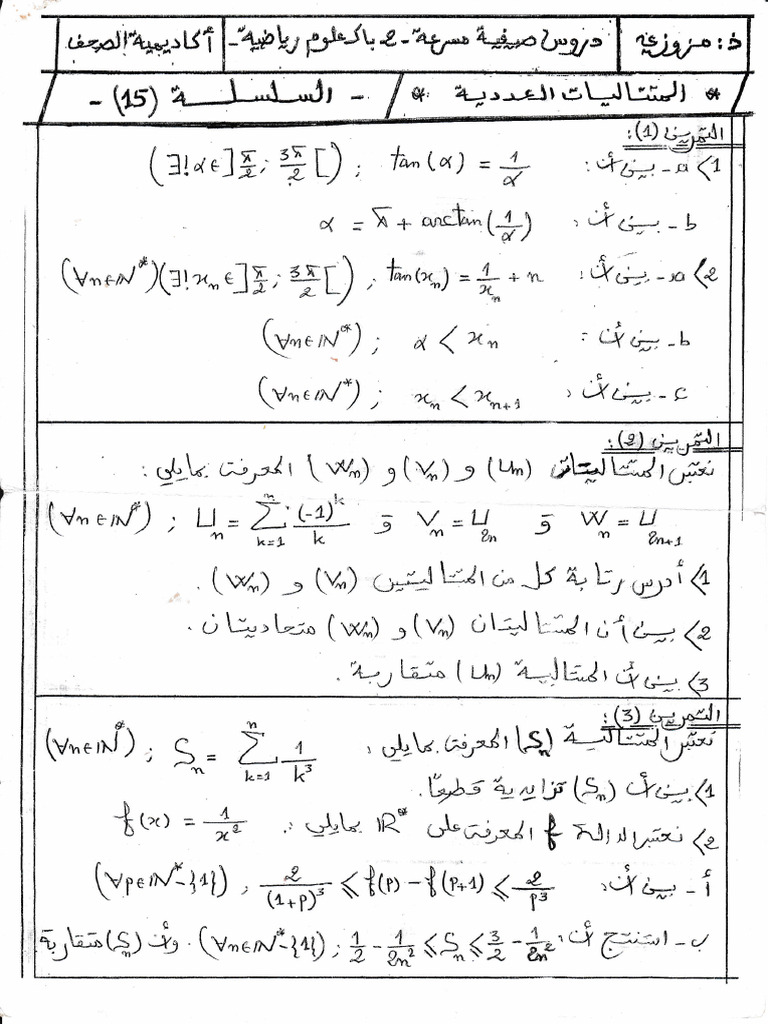 ذ: مزوزي | دروس صيفية مسرعة - 2 باك علوم رياضية - | أكاديمية الصحف
* المتتاليات العددية * / - السلسلة (15) -
التمرين (1):
1) a - بين أن: (∃!α∈]π/2 ; 3π/2[) ; tan(α) = 1/α
b - بين أن: α = π + arctan(1/α)
2) a - بين أن: (∀n∈ℕ*)(∃!xₙ∈]π/2 ; 3π/2[) ; tan(xₙ) = 1/xₙ + n
b - بين أن: (∀n∈ℕ*) ; α < xₙ
c - بين أن: (∀n∈ℕ*) ; xₙ < xₙ₊₁
التمرين (2):
نعتبر المتتاليات (Uₙ) و (Vₙ) و (Wₙ) المعرفة بمايلي:
(∀n∈ℕ*) ; Uₙ = Σ_{k=1}^{n} (-1)^k/k و Vₙ = U₂ₙ و Wₙ = U₂ₙ₊₁
1) أدرس رتابة كل من المتتاليتين (Vₙ) و (Wₙ).
2) بين أن المتتاليتان (Vₙ) و (Wₙ) متحاديتان.
3) بين أن المتتالية (Uₙ) متقاربة.
التمرين (3):
نعتبر المتتالية (Sₙ) المعرفة بمايلي: (∀n∈ℕ*) ; Sₙ = Σ_{k=1}^{n} 1/k³
1) بين أن (Sₙ) تزايدية قطعا.
2) نعتبر الدالة f المعرفة على ℝ* بمايلي: f(x) = 1/x²
أ - بين أن: (∀p∈ℕ*-{1}) ; 2/(1+p)³ ⩽ f(p) - f(p+1) ⩽ 2/p³
ب - استنتج أن: (∀n∈ℕ*-{1}) ; 1/2 - 1/2n² ⩽ Sₙ ⩽ 3/2 - 1/2n² . وأن (Sₙ) متقاربة